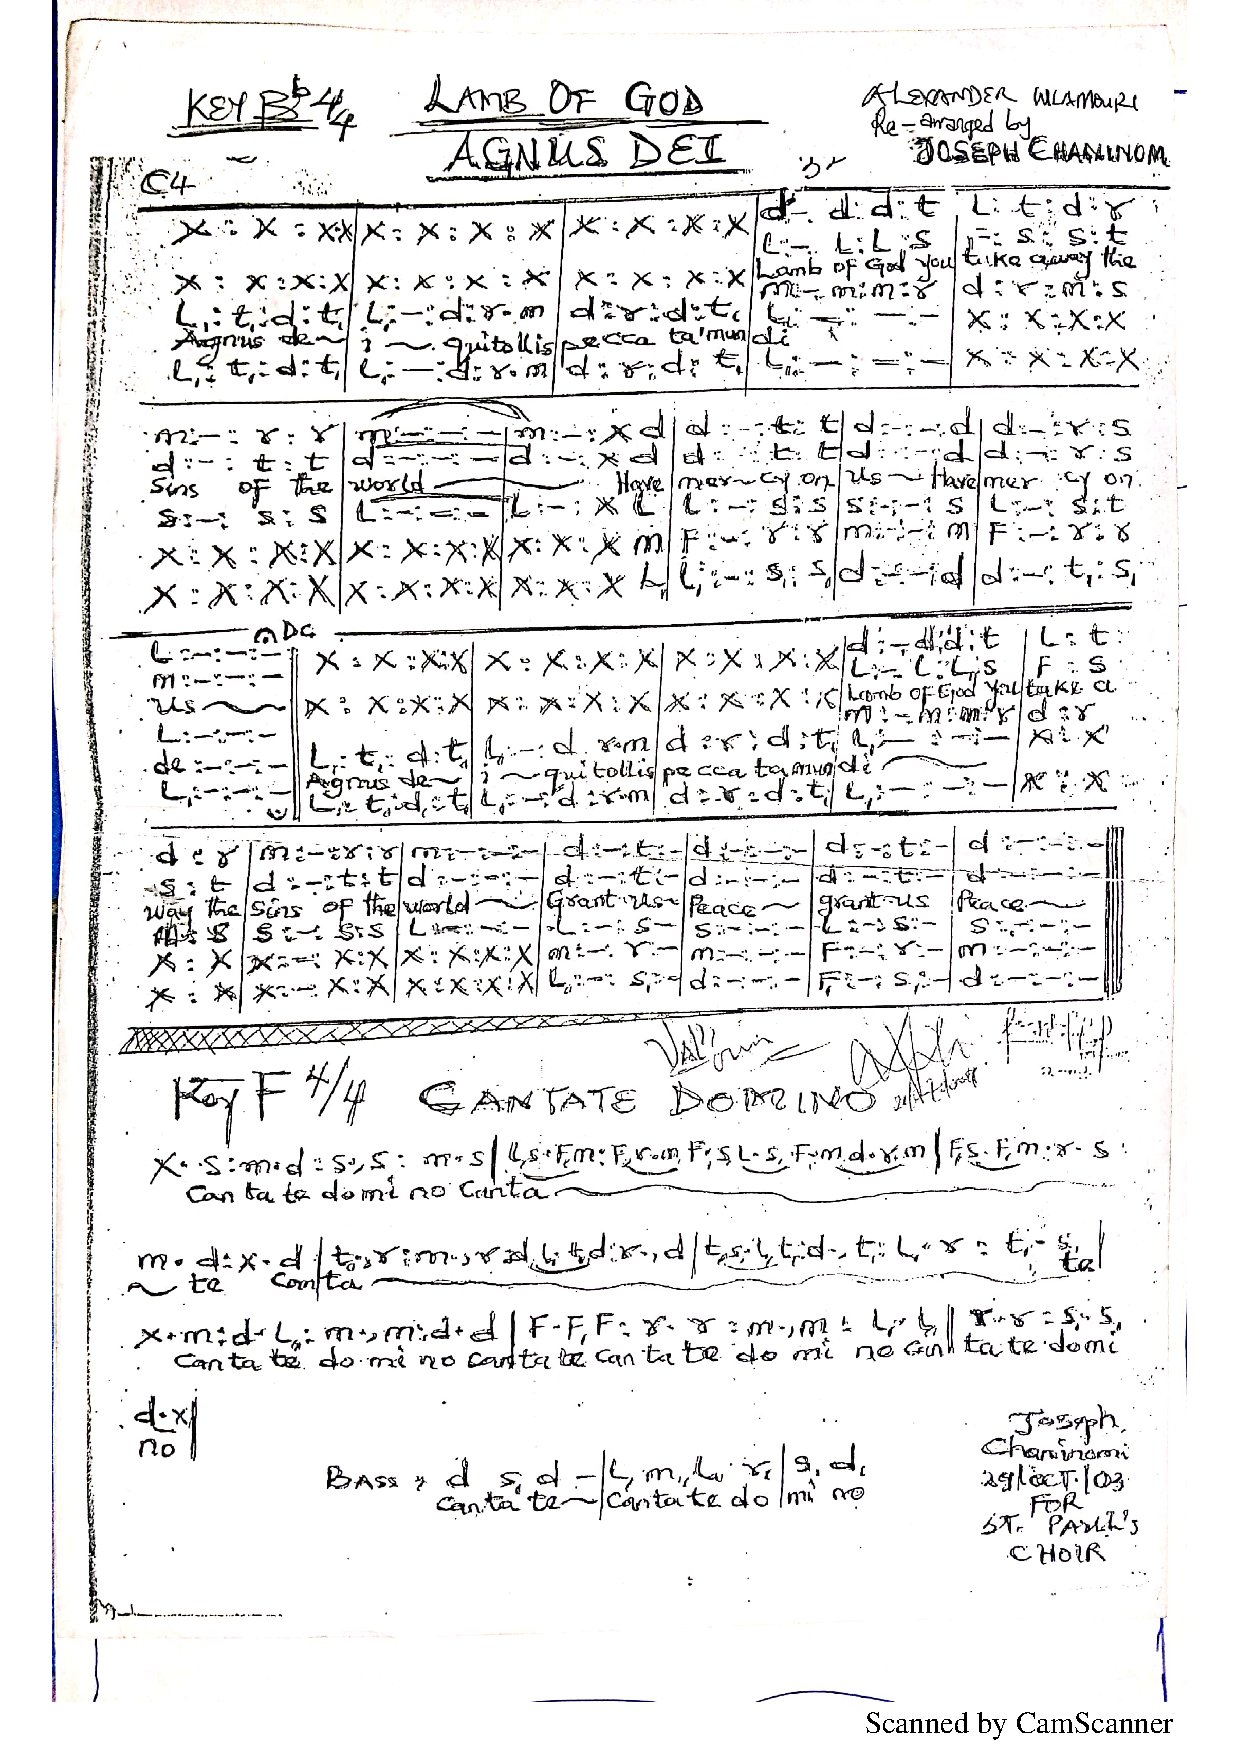 KEY B♭ 4/4 LAMB OF GOD
ALEXANDER
Re-arranged by
AGNUS DEI
JOSEPH CHANINOM
C4
X : X : X:X | X : X : X : X | X : X : X : X | d:-. d:d:t | L : t : d : r
L:-. L:L:S | -: s : s : t
Lamb of God you take away the
X : X : X : X | X : X : X : X | X : X : X : X | m:- m:m:r | d : r : m : s
L₁: t₁: d: t₁ | L₁: -: d: r.m | d: r: d: t₁ | L₁: -: -: - | X : X : X : X
Agnus de~ i ~ qui tollis pecca ta'mun di
L₁: t₁: d: t₁ | L₁: -: d: r.m | d: r: d: t₁ | L₁: -: -: - | X : X : X : X
m:-: r: r | m:-:-:- | m:-: X d | d:-: t: t | d:-:-: d | d:-: r: s
d:-: t: t | d:-:-:- | d:-: X d | d:-: t: t | d:-:-: d | d:-: r: s
Sins of the world Have mer-cy on us~ Have mer cy on
s:-: s: s | L:-:-:- | L:-: X L | L:-: s: s | s:-:-: s | L:-: s: t
X : X : X : X | X : X : X : X | X : X : X m | F:-: r: r | m:-:-: m | F:-: r: r
X : X : X : X | X : X : X : X | X : X : X L₁ | L₁:-: s₁: s₁ | d:-:-: d | d:-: t₁: s₁
DC
L:-:-:- | X : X : X : X | X : X : X : X | X : X : X : X | d:-d:d:t | L : t :
m:-:-:- | L:- L:L:s | F : s
us~ | X : X : X : X | X : X : X : X | X : X : X : X | Lamb of God you take a
m:-m:m:r | d : r
L:-:-:- | L₁: t₁: d: t₁ | L₁: -: d r.m | d: r: d: t₁ | L₁:-:-:- | X : X
de:-:-:- | Agnus de~ i ~ qui tollis pecca ta mun di
L₁:-:-:- | L₁: t₁: d: t₁ | L₁: -: d: r.m | d: r: d: t₁ | L₁:-:-:- | X : X
d : r | m:-: r: r | m:-:-:- | d:-: t:- | d:-:-:- | d:-: t:- | d:-:-:-
s : t | d:-: t: t | d:-:-:- | d:-: t:- | d:-:-:- | d:-: t:- | d:-:-:-
way the Sins of the world ~ Grant us Peace~ grant us Peace~
s:-: s:s | L:-:-:- | L:-: s:- | s:-:-:- | L:-: s:- | s:-:-:-
X : X | X:-: X:X | X : X : X : X | m:-: r:- | m:-:-:- | F:-: r:- | m:-:-:-
X : X | X:- X:X | X : X : X : X | L₁:-: s₁:- | d:-:-:- | F₁:-: s₁:- | d:-:-:-
Key F 4/4 CANTATE DOMINO
X. s:m.d:s., s: m.s | L,s.F,m:F,r.m,F:s,L.s,F.m,d.r,m | F,s.F,m:r.s:
Can ta te do mi no Canta
m.d:X.d | t₁., r:m., r:d,L₁.t₁,d:r., d | t₁,s₁.L₁,t₁:d., t₁: L₁.r: t₁.s₁ |
~ te Can ta te
X.m:d.L₁: m., m:d.d | F.F,F: r.r:m., m: L₁.L₁ | r.r:s₁.s₁
Can ta te do mi no can ta te can ta te do mi no can ta te do mi
d.X |
no
BASS d s₁ d - | L₁ m₁, L₁. r₁ | s₁ d₁
Can ta te~ Can ta te do mi no
Joseph
Chaninomi
29/OCT./03
FOR
ST. PAUL'S
CHOIR
Scanned by CamScanner